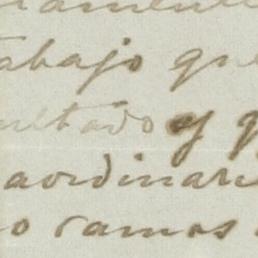 abajo que
ultado y q
aordinari
o ramos